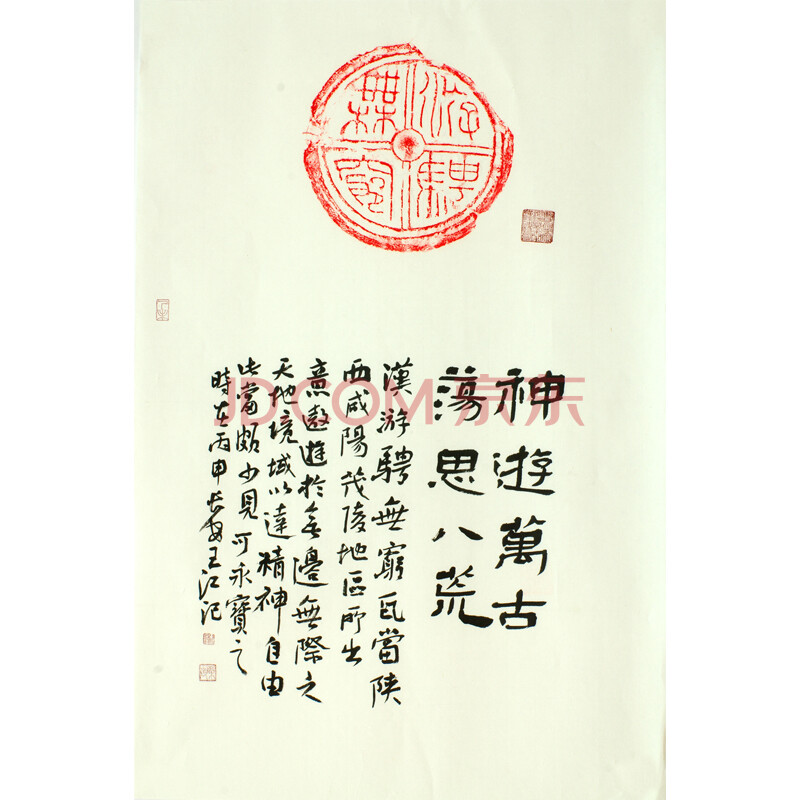 游骋
無窮
神遊萬古
蕩思八荒
漢游騁無窮瓦當陝
西咸陽茂陵地區所出
意遨遊於無邊無際之
天地境域以達精神自由
此當頗少見可永寶之
時在丙申長安王江記
JD.COM 京东